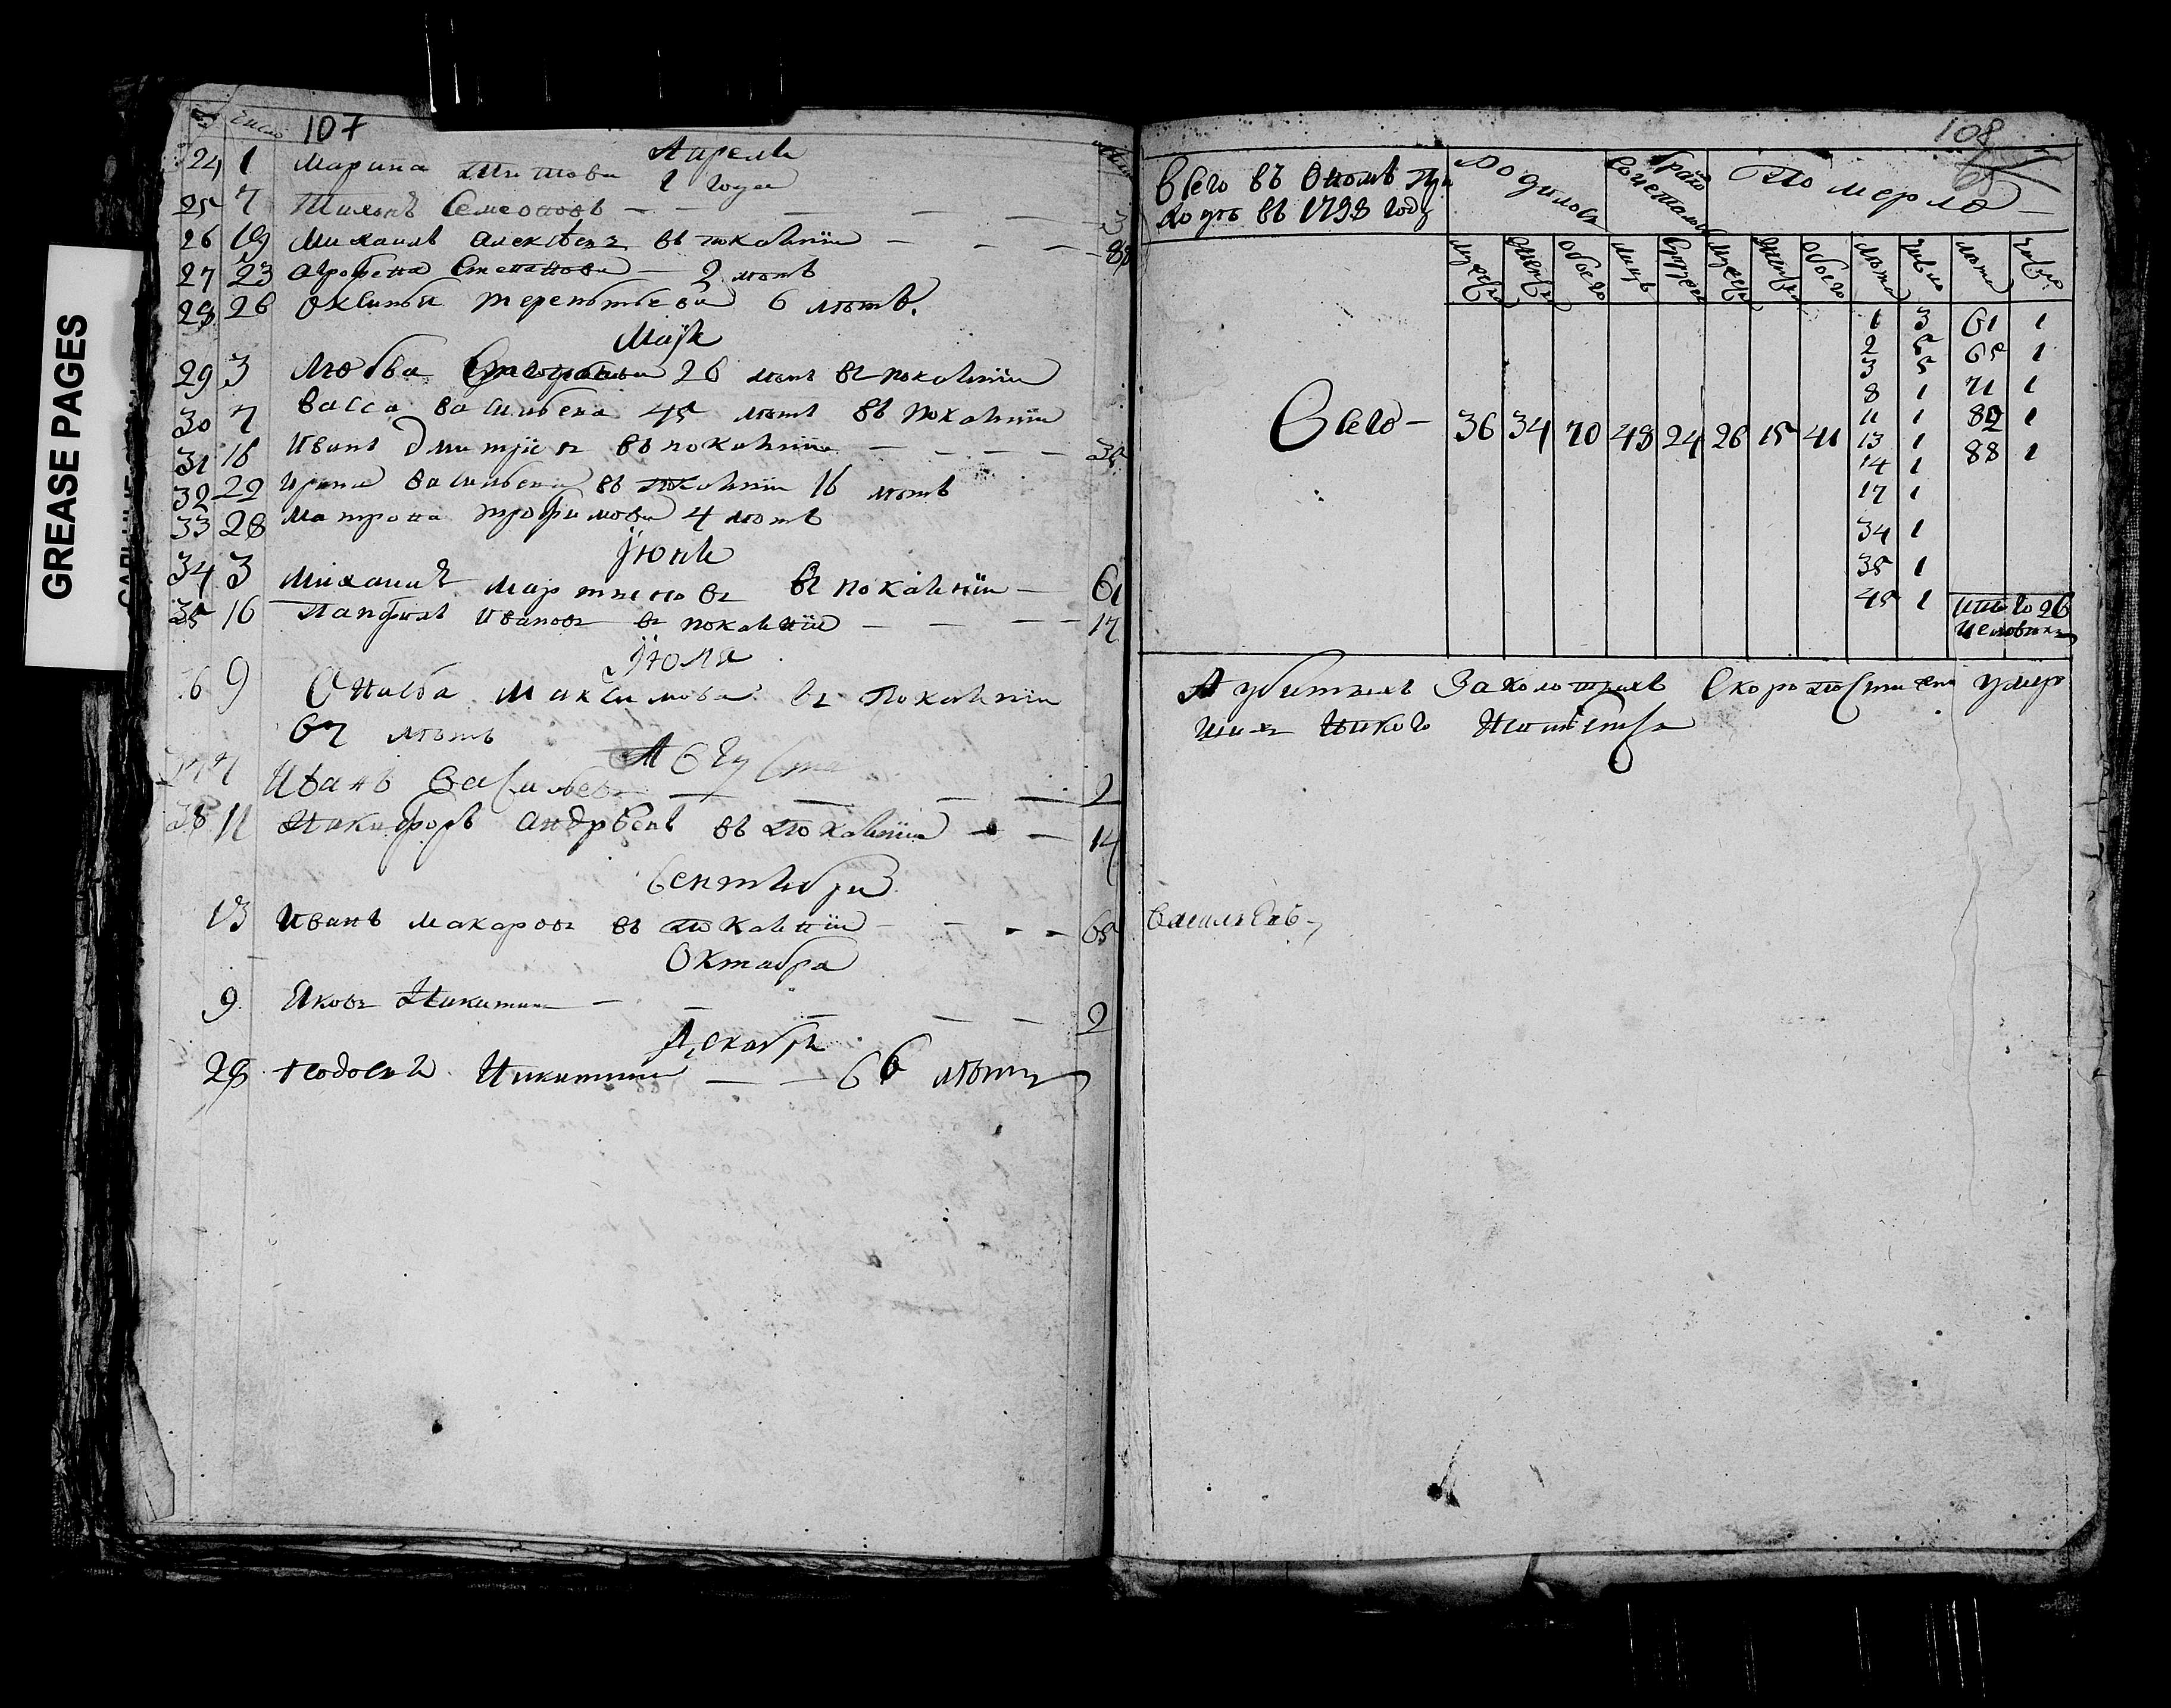 GREASE PAGES
107
Число
Апреля
24 1 Марина Титова 1 года
25 7 Тихонъ Семеоновъ — 3
26 19 Михаилъ Алексѣевъ въ покаянïи — 88
27 23 Агрофена Степанова — 2 лѣтъ
28 26 Оксинья Терентьева 6 лѣтъ.
Маïя
29 3 Любва 26 лѣтъ въ покаянïи
30 7 Васса Васильева 45 лѣтъ въ покаянïи
31 16 Иванъ Дмитрïевъ въ покаянïи — 35
32 22 Ирина Васильева въ покаянïи 16 лѣтъ
33 28 Матрона Трофимова 4 лѣтъ
Їюня
34 3 Михаилъ Мартиновъ въ покаянïи — 61
35 16 Панфилъ Ивановъ въ покаянïи — 17
Їюля
36 9 Максимова въ покаянïи
67 лѣтъ
Августа
37 7 Иванъ Васильевъ — 2
38 11 Никифоръ Андрѣевъ въ покаянïи — 14
Сентября
13 Иванъ Макаровъ въ покаянïи — 65
Октабра
9 Яковъ Никитинъ — 2
Декабря
29 Никитинъ — 66 лѣтъ
108
Всего въ ономъ при
ходѣ въ 1798 году
Родилось
Брако
сочеталось
Померло
мужеска женска обоего лицъ мужеска женска обоего лѣта число лѣта число
1 3 61 1
2 5 65 1
3 5 71 1
8 1 82 1
11 1 88 1
Всего — 36 34 70 48 24 26 15 41
13 1
14 1
17 1
34 1
35 1
45 1
Итого 26
человѣкъ
А убитыхъ заколотыхъ скоропостижно умер
шихъ никого
Васильевъ